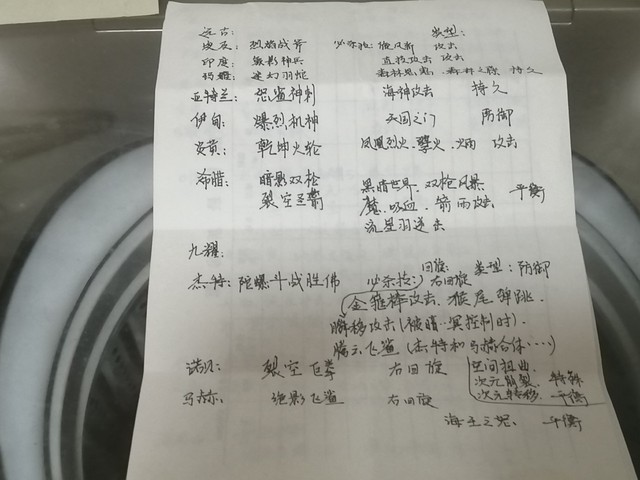 远古： 类型：
埃及：烈焰战斧 必杀技：旋风斩 攻击
印度：幻影神兵 直接攻击 攻击
玛雅：迷幻羽蛇 森林 森林之 持久
亚特兰：恐鲨神刺 海神攻击 持久
伊甸：爆烈机神 天国之门 防御
炎黄：乾坤火轮 凤凰烈火、孽火、火炳 攻击
希腊：暗影双枪 黑暗世界、双枪风暴
裂空圣箭 魔、吸血、箭雨攻击 平衡
流星羽逆击
九耀：
回旋 类型：防御
杰特：陀螺斗战胜佛 必杀技：右回旋
金箍棒攻击、猴尾弹跳、
瞬移攻击(被暗··冥控制时)、
腾云飞鲨(杰特和马赫合体····)
诺凡： 裂空飞拳 右回旋 空间扭曲、
次元崩裂、 特殊
马赫： 绝影飞鲨 右回旋 次元转移、 平衡
海王之 平衡